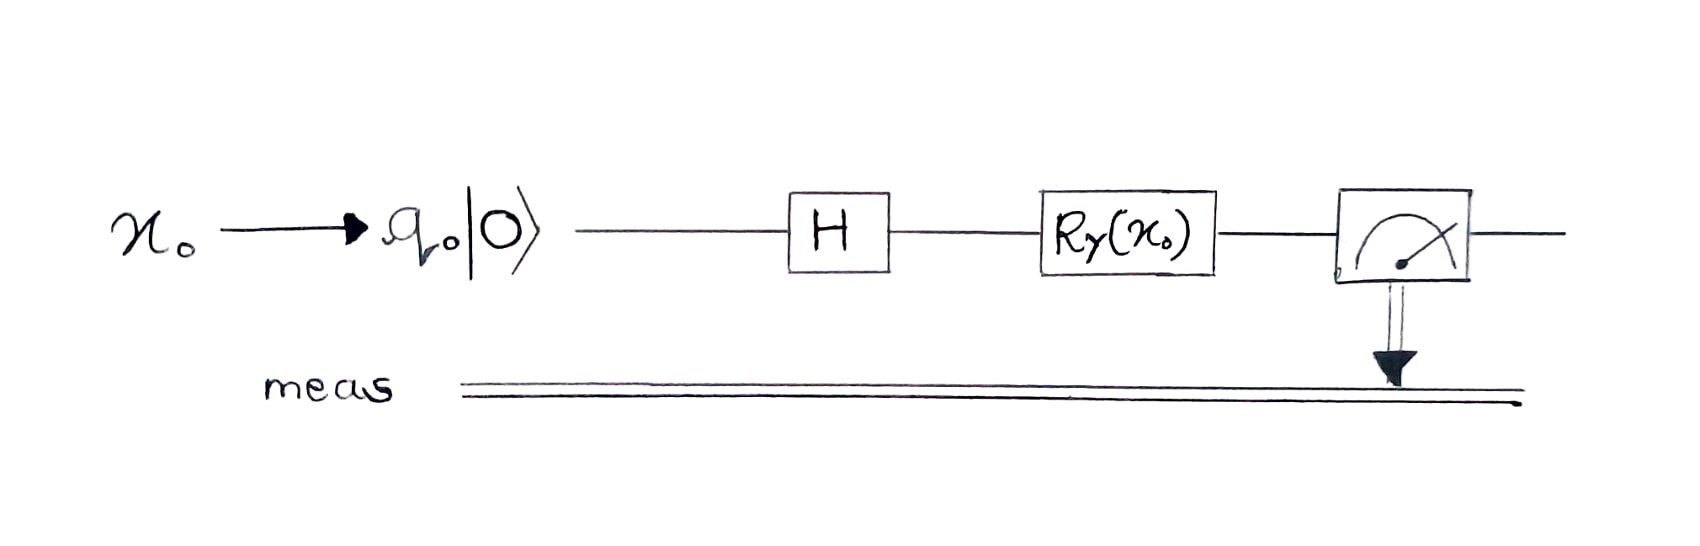 x₀ → q₀|0⟩ H R_Y(x₀)
meas